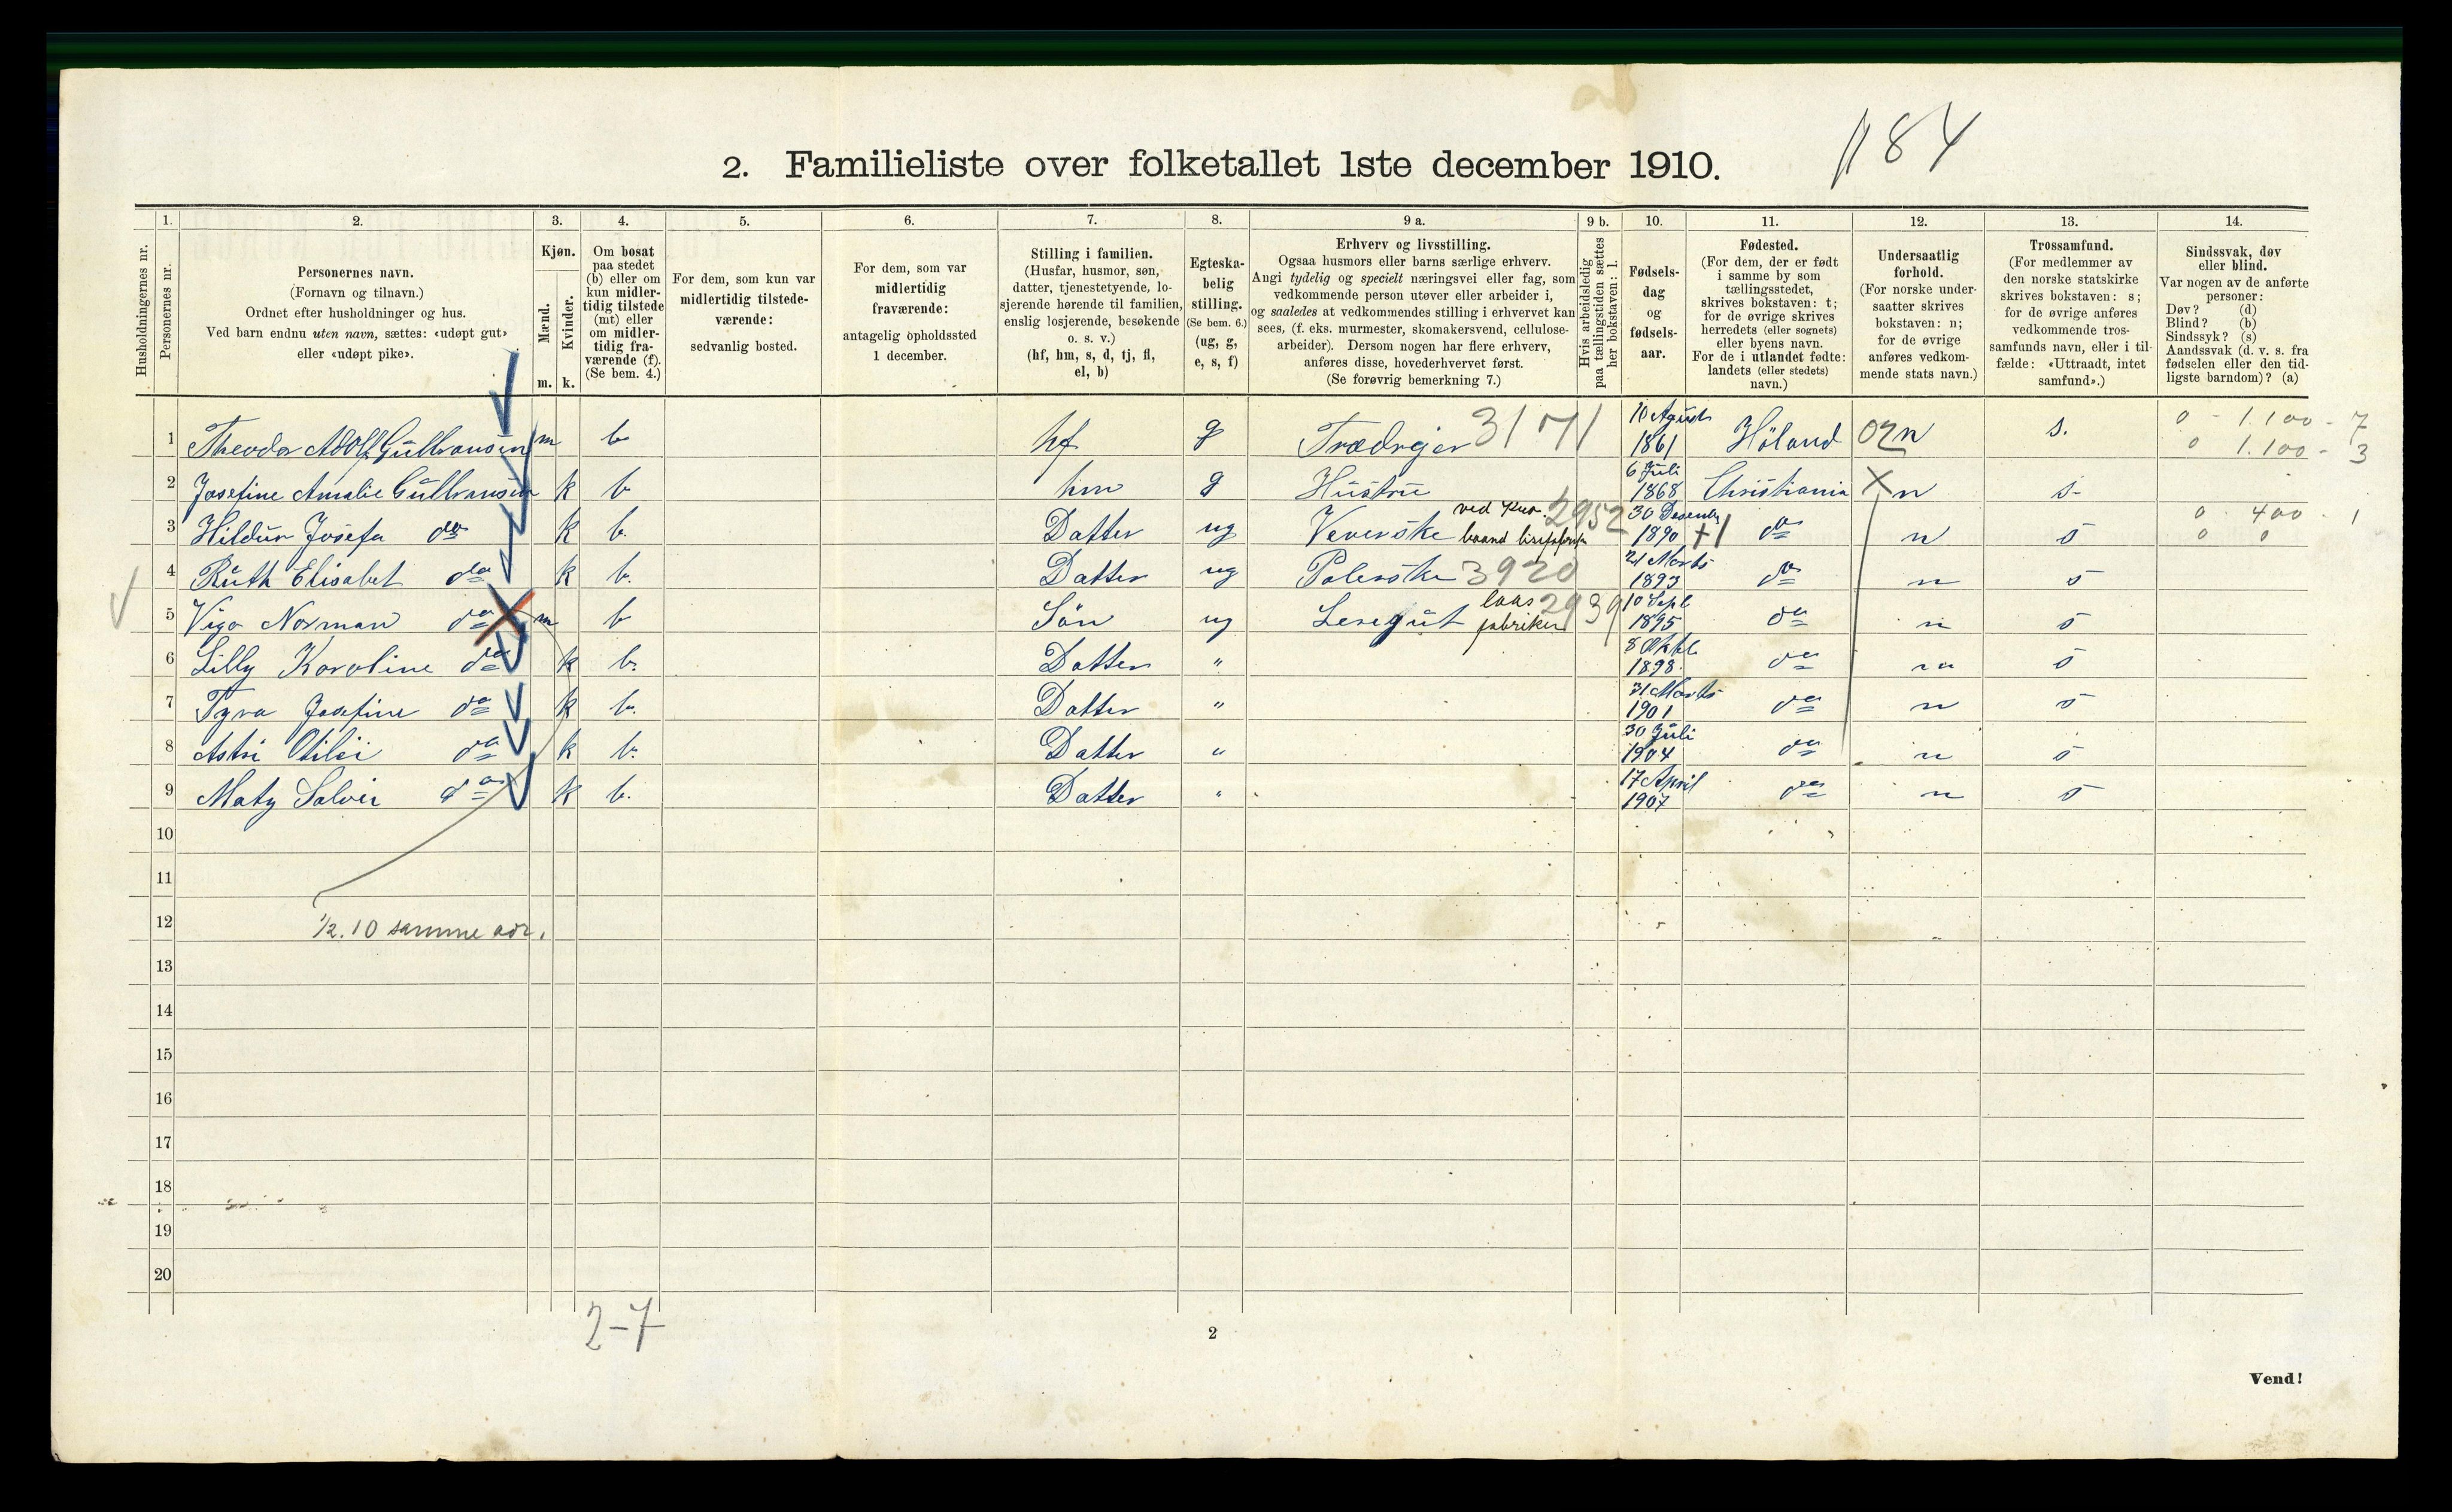 184
2. Familieliste over folketallet 1ste december 1910.
Husholdningernes nr.
1.
Personernes nr.
2.
Personernes navn.
(Fornavn og tilnavn.)
Ordnet efter husholdninger og hus.
Ved barn endnu uten navn, sættes: «udøpt gut»
eller «udøpt pike».
3.
Kjøn.
Mænd.
Kvinder.
m. k.
4.
Om bosat
paa stedet
(b) eller om
kun midler-
tidig tilstede
(mt) eller
om midler-
tidig fra-
værende (f).
(Se bem. 4.)
5.
For dem, som kun var
midlertidig tilstede-
værende:
sedvanlig bosted.
6.
For dem, som var
midlertidig
fraværende:
antagelig opholdssted
1 december.
7.
Stilling i familien.
(Husfar, husmor, søn,
datter, tjenestetyende, lo-
sjerende hørende til familien,
enslig losjerende, besøkende
o. s. v.)
(hf, hm, s, d, tj, fl,
el, b)
8.
Egteska-
belig
stilling.
(Se bem. 6.)
(ug, g,
e, s, f)
9 a.
Erhverv og livsstilling.
Ogsaa husmors eller barns særlige erhverv.
Angi tydelig og specielt næringsvei eller fag, som
vedkommende person utøver eller arbeider i,
og saaledes at vedkommendes stilling i erhvervet kan
sees, (f. eks. murmester, skomakersvend, cellulose-
arbeider). Dersom nogen har flere erhverv,
anføres disse, hovederhvervet først.
(Se forøvrig bemerkning 7.)
9 b.
Hvis arbeidsledig
paa tællingstiden sættes
her bokstaven: l.
10.
Fødsels-
dag
og
fødsels-
aar.
11.
Fødested.
(For dem, der er født
i samme by som
tællingsstedet,
skrives bokstaven: t;
for de øvrige skrives
herredets (eller sognets)
eller byens navn.
For de i utlandet fødte:
landets (eller stedets)
navn.)
12.
Undersaatlig
forhold.
(For norske under-
saatter skrives
bokstaven: n;
for de øvrige
anføres vedkom-
mende stats navn.)
13.
Trossamfund.
(For medlemmer av
den norske statskirke
skrives bokstaven: s;
for de øvrige anføres
vedkommende tros-
samfunds navn, eller i til-
fælde: «Uttraadt, intet
samfund».)
14.
Sindssvak, døv
eller blind.
Var nogen av de anførte
personer:
Døv? (d)
Blind? (b)
Sindssyk? (s)
Aandssvak (d. v. s. fra
fødselen eller den tid-
ligste barndom)? (a)
1 Theodor Adolf Gulbransen m b hf g Trædrejer 3171 10 August 1861 Höland 02 n s. 0 - 1.100 - 7
0 1.100 - 3
2 Josefine Amalie Gulbransen k b hm g Hustru 6 Juli 1868 Christiania X n s-
3 Hildur Josefa do k b. Datter ug Veverske 2952 30 Desember 1890 do n s 0 400 - 1
0 0
4 Ruth Elisabet do k b. Datter ug Polerske 3920 21 Marts 1893 do n s
5 Vigo Norman do m b Sön ug laas fabriken 2939 10 Sept 1895 do n s
6 Lilly Karoline do k b. Datter " 8 Oktb 1898. do n s
7 Tyra Josefine do k b. Datter " 31 Marts 1901 do n s
8 Astri Otilie do k b. Datter " 30 Juli 1904 do n s
9 Maty Solvei do k b. Datter " 17 April 1907 do n s
10
11
12 1/2.10 samme adr.
13
14
15
16
17
18
19
20
2-7
2
Vend!